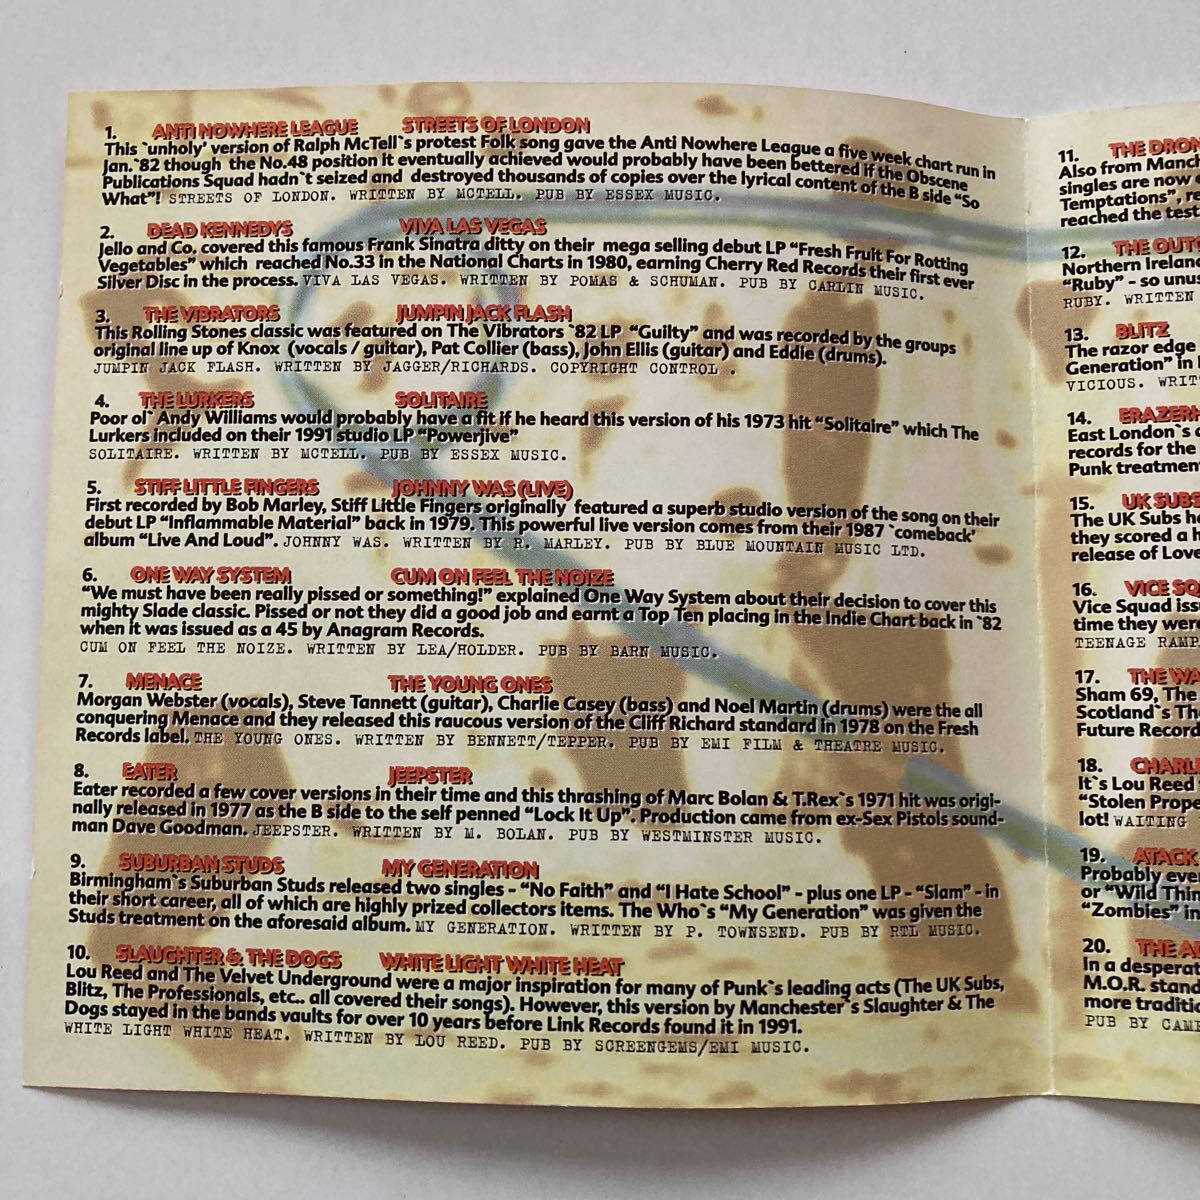 1. ANTI NOWHERE LEAGUE STREETS OF LONDON
This `unholy' version of Ralph McTell`s protest Folk song gave the Anti Nowhere League a five week chart run in
Jan.`82 though the No.48 position it eventually achieved would probably have been bettered if the Obscene
Publications Squad hadn`t seized and destroyed thousands of copies over the lyrical content of the B side "So
What"! STREETS OF LONDON. WRITTEN BY MCTELL. PUB BY ESSEX MUSIC.
2. DEAD KENNEDYS VIVA LAS VEGAS
Jello and Co. covered this famous Frank Sinatra ditty on their mega selling debut LP "Fresh Fruit For Rotting
Vegetables" which reached No.33 in the National Charts in 1980, earning Cherry Red Records their first ever
Silver Disc in the process. VIVA LAS VEGAS. WRITTEN BY POMAS & SCHUMAN. PUB BY CARLIN MUSIC.
3. THE VIBRATORS JUMPIN JACK FLASH
This Rolling Stones classic was featured on The Vibrators `82 LP "Guilty" and was recorded by the groups
original line up of Knox (vocals / guitar), Pat Collier (bass), John Ellis (guitar) and Eddie (drums).
JUMPIN JACK FLASH. WRITTEN BY JAGGER/RICHARDS. COPYRIGHT CONTROL .
4. THE LURKERS SOLITAIRE
Poor ol` Andy Williams would probably have a fit if he heard this version of his 1973 hit "Solitaire" which The
Lurkers included on their 1991 studio LP "Powerjive"
SOLITAIRE. WRITTEN BY MCTELL. PUB BY ESSEX MUSIC.
5. STIFF LITTLE FINGERS JOHNNY WAS (LIVE)
First recorded by Bob Marley, Stiff Little Fingers originally featured a superb studio version of the song on their
debut LP "Inflammable Material" back in 1979. This powerful live version comes from their 1987 `comeback'
album "Live And Loud". JOHNNY WAS. WRITTEN BY R. MARLEY. PUB BY BLUE MOUNTAIN MUSIC LTD.
6. ONE WAY SYSTEM CUM ON FEEL THE NOIZE
"We must have been really pissed or something!" explained One Way System about their decision to cover this
mighty Slade classic. Pissed or not they did a good job and earnt a Top Ten placing in the Indie Chart back in `82
when it was issued as a 45 by Anagram Records.
CUM ON FEEL THE NOIZE. WRITTEN BY LEA/HOLDER. PUB BY BARN MUSIC.
7. MENACE THE YOUNG ONES
Morgan Webster (vocals), Steve Tannett (guitar), Charlie Casey (bass) and Noel Martin (drums) were the all
conquering Menace and they released this raucous version of the Cliff Richard standard in 1978 on the Fresh
Records label. THE YOUNG ONES. WRITTEN BY BENNETT/TEPPER. PUB BY EMI FILM & THEATRE MUSIC.
8. EATER JEEPSTER
Eater recorded a few cover versions in their time and this thrashing of Marc Bolan & T.Rex`s 1971 hit was origi-
nally released in 1977 as the B side to the self penned "Lock It Up". Production came from ex-Sex Pistols sound-
man Dave Goodman. JEEPSTER. WRITTEN BY M. BOLAN. PUB BY WESTMINSTER MUSIC.
9. SUBURBAN STUDS MY GENERATION
Birmingham`s Suburban Studs released two singles - "No Faith" and "I Hate School" - plus one LP - "Slam" - in
their short career, all of which are highly prized collectors items. The Who`s "My Generation" was given the
Studs treatment on the aforesaid album. MY GENERATION. WRITTEN BY P. TOWNSEND. PUB BY RTL MUSIC.
10. SLAUGHTER & THE DOGS WHITE LIGHT WHITE HEAT
Lou Reed and The Velvet Underground were a major inspiration for many of Punk`s leading acts (The UK Subs,
Blitz, The Professionals, etc.. all covered their songs). However, this version by Manchester`s Slaughter & The
Dogs stayed in the bands vaults for over 10 years before Link Records found it in 1991.
WHITE LIGHT WHITE HEAT. WRITTEN BY LOU REED. PUB BY SCREENGEMS/EMI MUSIC.
11. THE DRON
Also from Manch
singles are now e
Temptations", re
reached the test
12. THE OUTC
Northern Ireland
"Ruby" - so unus
RUBY. WRITTEN
13. BLITZ
The razor edge
Generation" in
VICIOUS. WRIT
14. ERAZERH
East London`s
records for the
Punk treatment
15. UK SUBS
The UK Subs he
they scored a h
release of Love
16. VICE SQ
Vice Squad issu
time they were
TEENAGE RAMP
17. THE WA
Sham 69, The
Scotland`s The
Future Record
18. CHARLI
It`s Lou Reed
"Stolen Prope
lot! WAITING
19. ATACK
Probably ever
or "Wild Thin
"Zombies" in
20. THE A
In a desperat
M.O.R. stand
more traditio
PUB BY CAMP